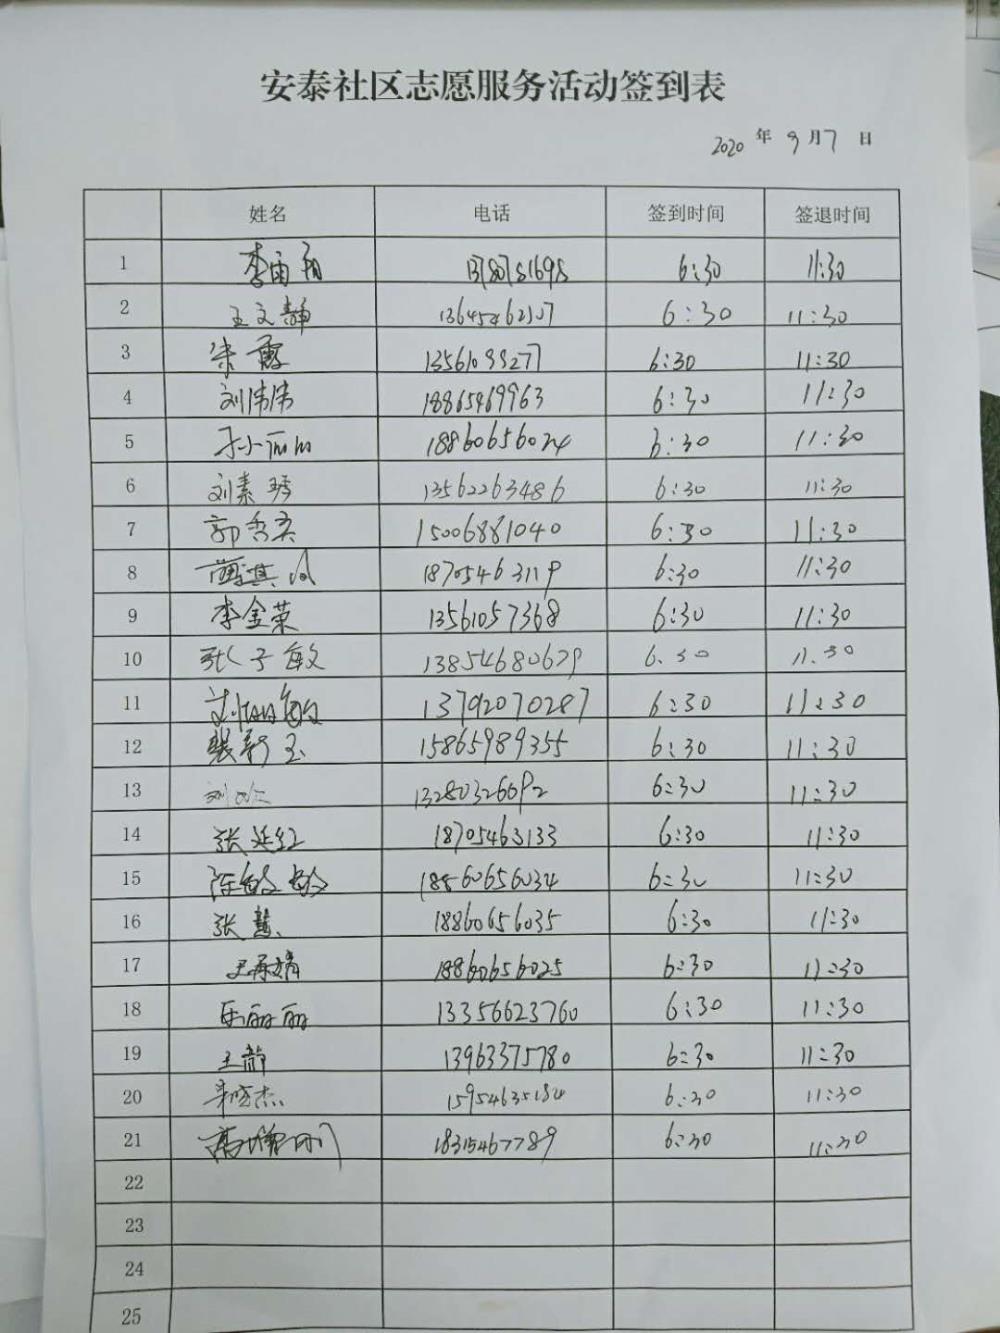 安泰社区志愿服务活动签到表
2020 年 9 月 7 日
姓名 电话 签到时间 签退时间
1 李雨 6:30 11:30
2 王文静 6:30 11:30
3 朱霞 6:30 11:30
4 刘伟伟 18865469963 6:30 11:30
5 于小丽 18860656024 6:30 11:30
6 刘素琴 13562263486 6:30 11:30
7 郭秀英 15006881040 6:30 11:30
8 6:30 11:30
9 李金荣 13561057368 6:30 11:30
10 张子敏 13854680679 6:30 11:30
11 13792070287 6:30 11:30
12 裴新玉 15865989355 6:30 11:30
13 6:30 11:30
14 张延红 18705463133 6:30 11:30
15 陈敏敏 18860656034 6:30 11:30
16 张慧 18860656035 6:30 11:30
17 18860656025 6:30 11:30
18 乐丽丽 13356623760 6:30 11:30
19 王静 13963375780 6:30 11:30
20 6:30 11:30
21 18315467789 6:30 11:30
22
23
24
25